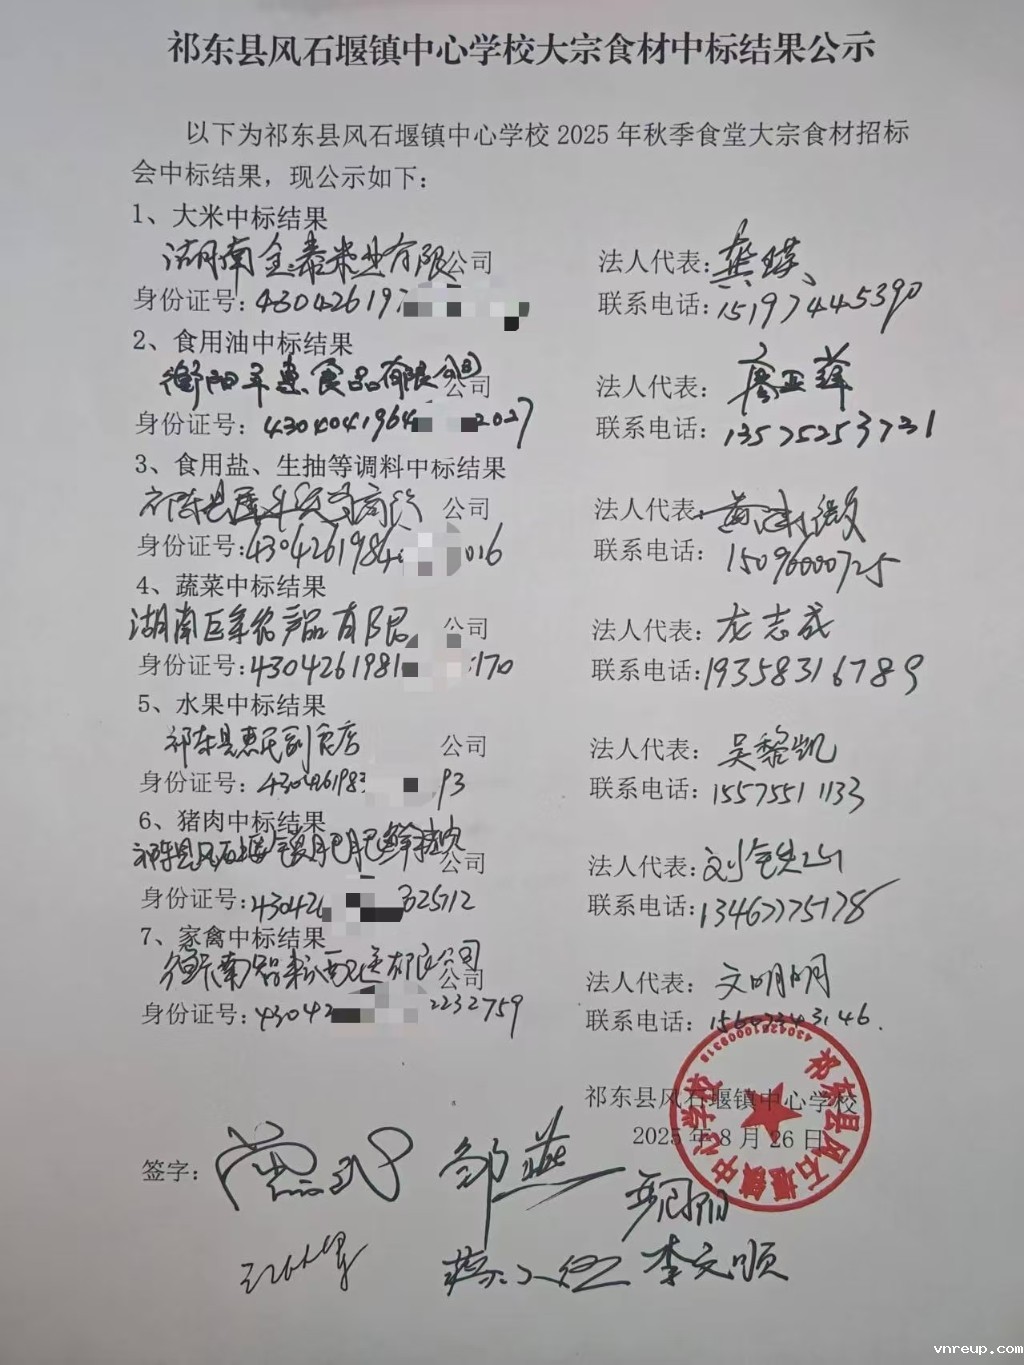 祁东县风石堰镇中心学校大宗食材中标结果公示
以下为祁东县风石堰镇中心学校 2025 年秋季食堂大宗食材招标
会中标结果，现公示如下：
1、大米中标结果
湖南金泰米业有限公司 法人代表：龚瑛
身份证号：430426197 联系电话：15197445390
2、食用油中标结果
衡阳 惠食品有限公司 公司 法人代表：廖亚辉
身份证号：4304041964 2027 联系电话：13575253731
3、食用盐、生抽等调料中标结果
祁东县 商行 公司 法人代表：黄 微
身份证号：4304261984 016 联系电话：15096000725
4、蔬菜中标结果
湖南 农产品有限 公司 法人代表：龙志成
身份证号：4304261981 170 联系电话：19358316789
5、水果中标结果
祁东县惠民副食店 公司 法人代表：吴黎凯
身份证号：430426198 93 联系电话：15575511133
6、猪肉中标结果
祁东县风石堰镇 公司 法人代表：刘
身份证号：43042 联系电话：13467775178
7、家禽中标结果
衡南 有限公司 公司 法人代表：文明明
身份证号：43042 2232759 联系电话：
祁东县风石堰镇中心学校
2025 年 8 月 26 日
祁东县风石堰镇中心学校
签字： 邹燕
李文顺
vnreup.com